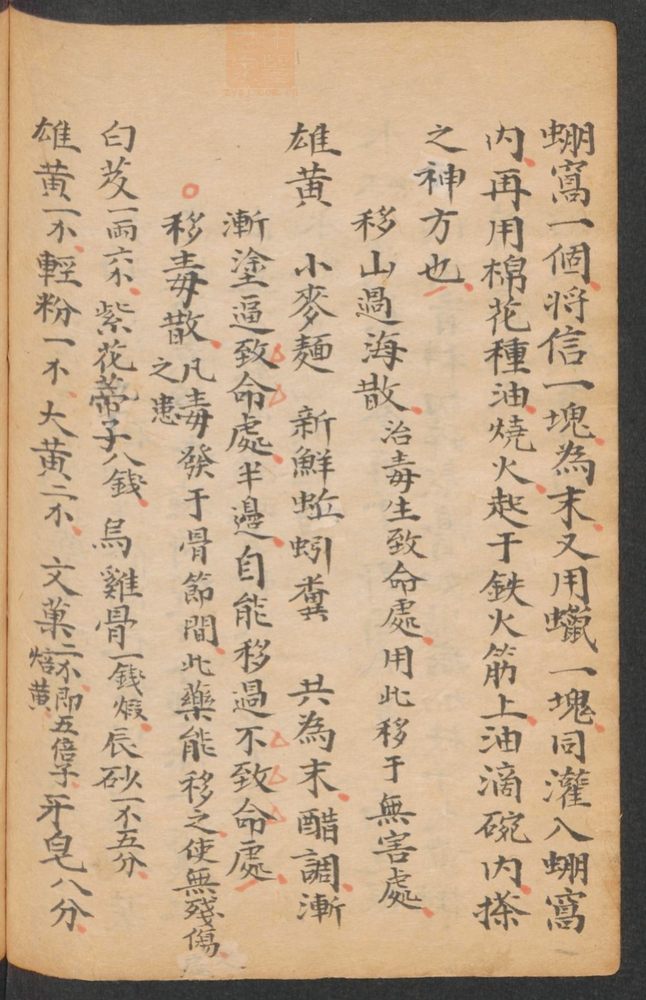 蜘窩一個將信一塊為末又用蠟一塊同灌入蜘窩
內再用棉花種油燒火起于鉄火筋上油滴碗內搽
之神方也
移山過海散治毒生致命處用此移于無害處
雄黃 小麥麵 新鮮蚯蚓糞 共為末醋調漸
漸塗逼致命處半邊自能移過不致命處
移毒散凡毒發于骨節間此藥能移之使無殘傷
之患
白芨一兩六不紫花蒂子八錢烏雞骨一錢煅辰砂一不五分
雄黃一不輕粉一不大黃二不文菓二不即五倍子牙皂八分
焙黃